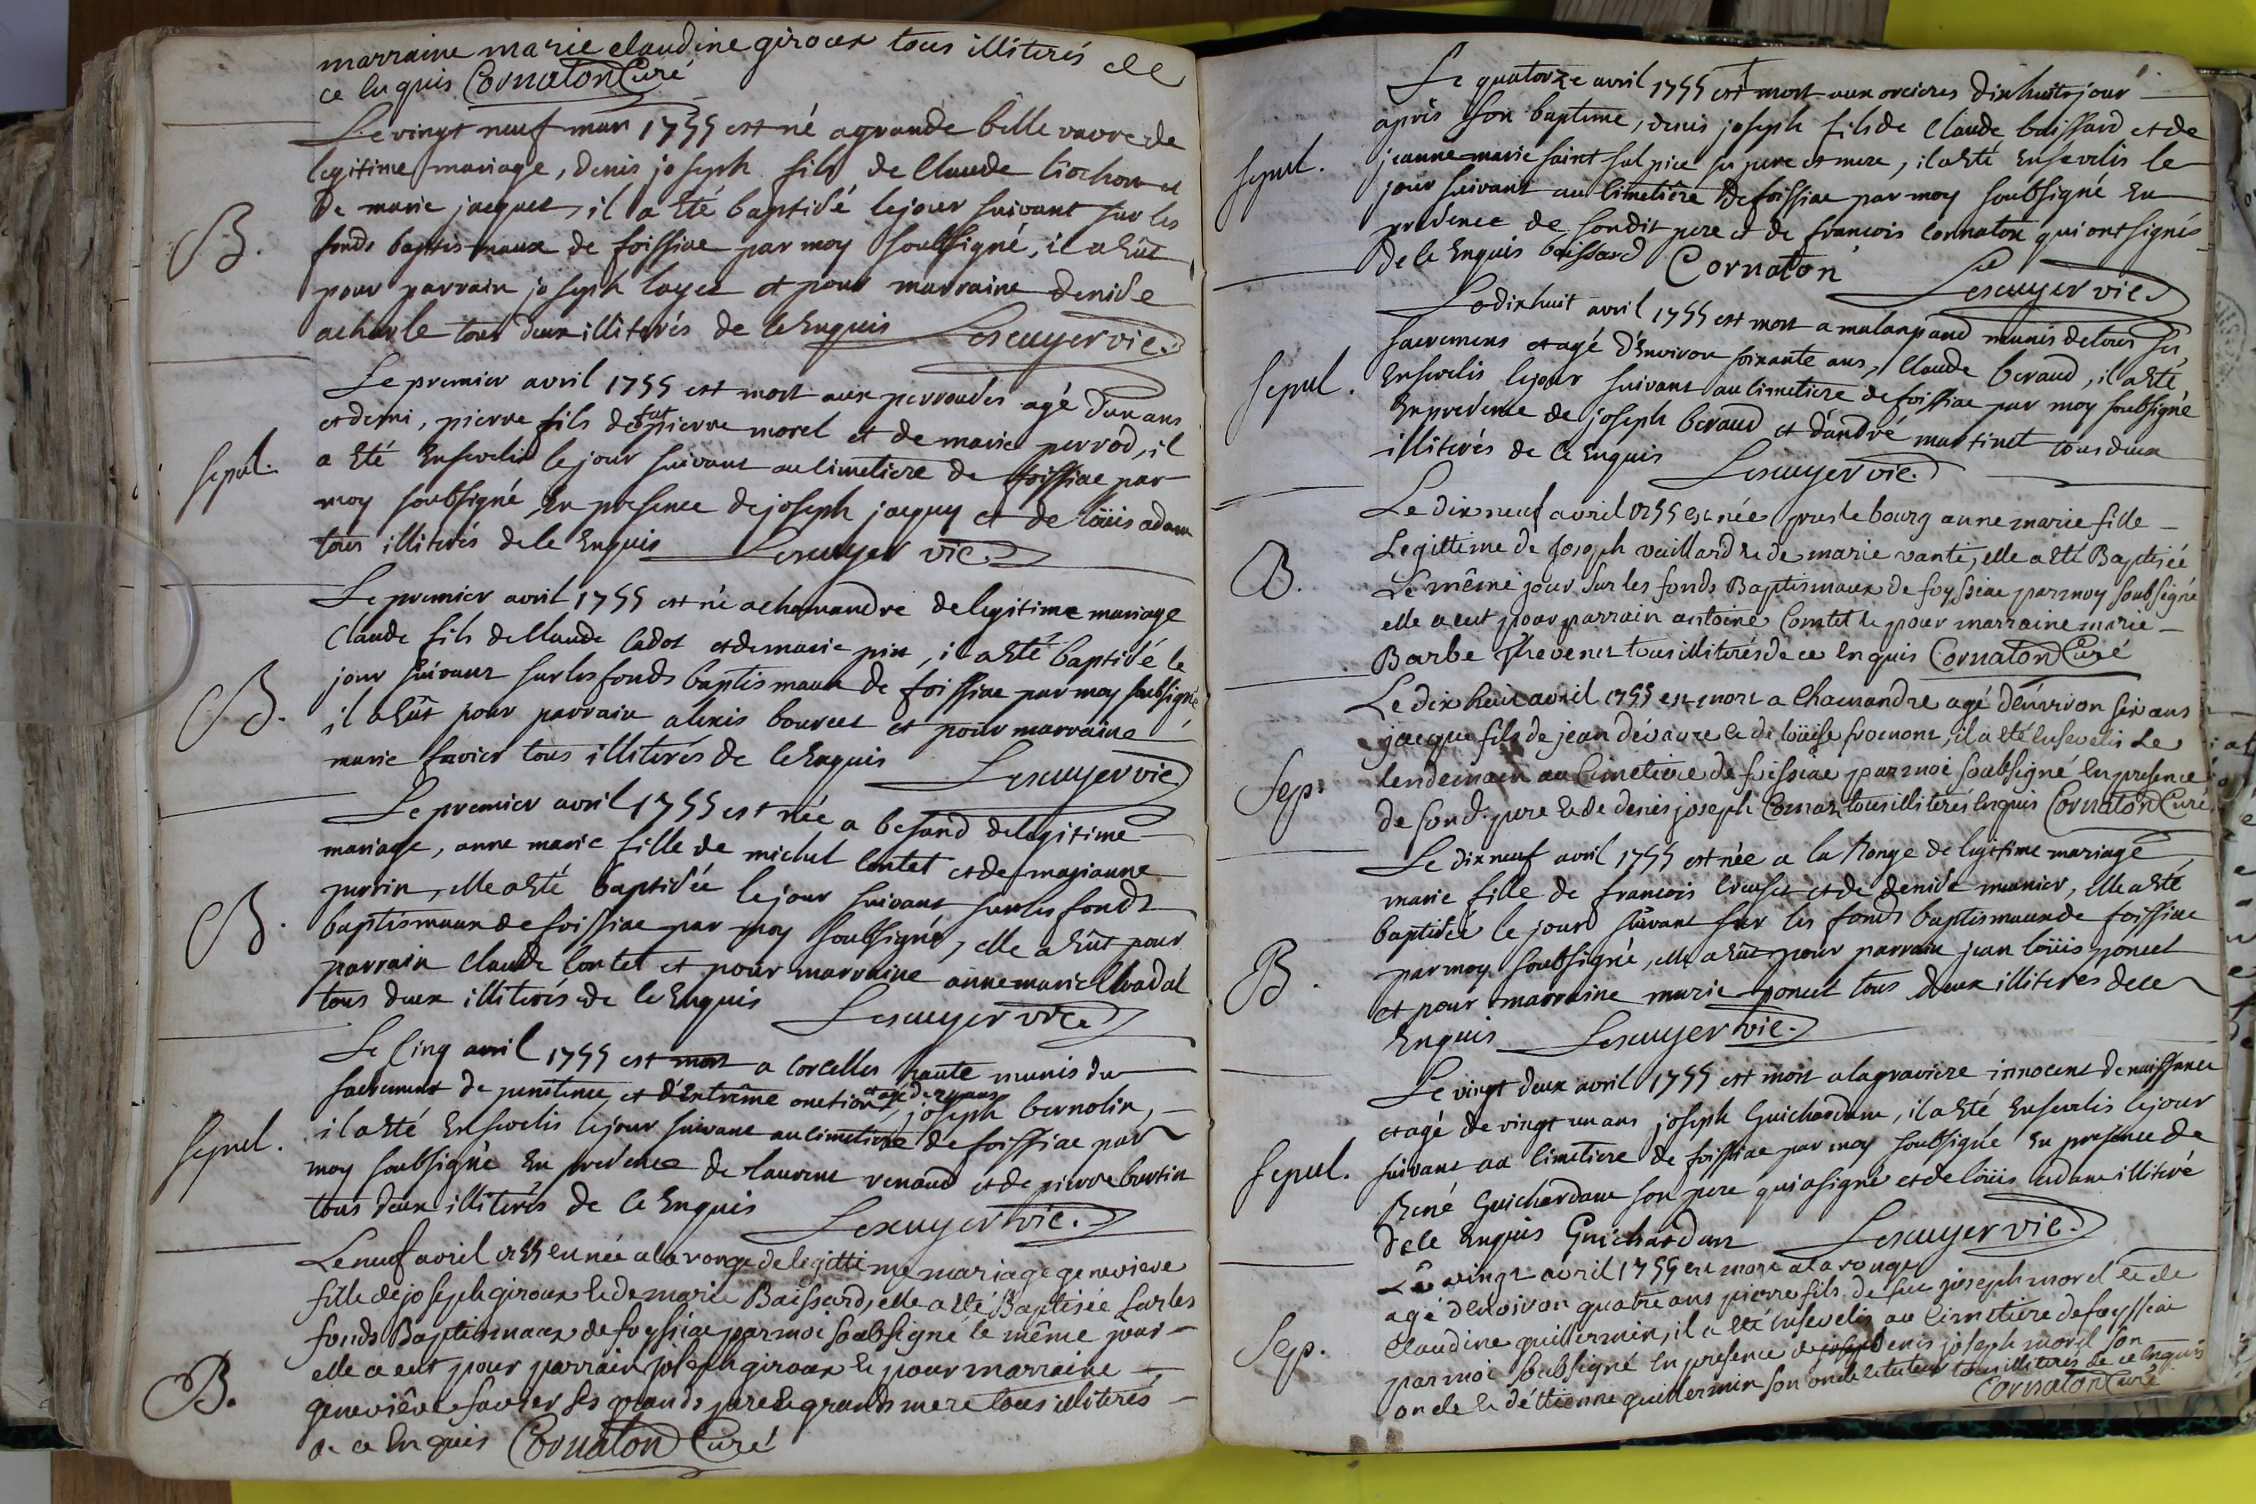 marraine marie claudine giroux tous illiterés de
ce Enquis Cornaton Curé
Le vingt neuf mars 1755 est né a grande belle vavre de
legitime mariage, denis joseph fils de Claude et
de marie jacquet, il a Eté baptisé le jour suivant sur les
B.
fonds baptismaux de foissiac par moy soubsigné, il a Eût
pour parrain joseph layet et pour marraine denise
acharle tous deux illiterés de ce Enquis Lescuyer vic.
Le premier avril 1755 est mort aux perroudes agé d'un ans
et demi, pierre fils de fut pierre morel et de marie perrod, il
sepul.
a Eté Ensevelis le jour suivant au Cimetiere de foissiac par
moy soubsigné, En presence de joseph jacquy et de loüis adam
tous illiterés de ce Enquis Lescuyer vic.
Le premier avril 1755 est né a chamandre de legitime mariage
Claude fils de Claude Cadot et de marie pin, il a Eté baptisé le
B.
jour suivant sur les fonds baptismaux de foissiac par moy soubsigné,
il a Eût pour parrain alexis bourcet et pour marraine
marie favier tous illiterés de ce Enquis Lescuyer vic
Le premier avril 1755 est née a besand de legitime
mariage, anne marie fille de michel Contet et de marianne
perrin, elle a Eté baptisée le jour suivant sur les fonds
B.
baptismaux de foissiac par moy soubsigné, elle a Eût pour
parrain Claude Contet et pour marraine anne marie Chadal
tous deux illiterés de ce Enquis Lescuyer vic.
Le Cinq avril 1755 est mort a Corcelles haute munis du
sacrement de penitence et d'Extrême onction et agé de ans, joseph bernolin,
sepul.
il a Eté Ensevelis le jour suivant au Cimetiere de foissiac par
moy soubsigné En presence de laurent renaud et de pierre burtin
tous deux illiterés de ce Enquis Lescuyer vic.
Le neuf avril 1755 est née a la ronge de legittime mariage genevieve
fille de joseph giroux et de marie Baissard, elle a Eté Baptisée sur les
fonds Baptismaux de foyssiac par moi soubsigné le même jour
B.
elle a eut pour parrain joseph giroux et pour marraine
geneviêve favier ses grands pere et grands mere tous illiterés
de ce Enquis Cornaton Curé
Le quatorze avril 1755 est mort aux orcieres dixhuit jour
après son baptême, denis joseph fils de Claude baissard et de
sepul.
jeanne marie saint sulpice ses pere et mere, il a Eté Ensevelis le
jour suivant au Cimetiere de foissiac par moy soubsigné En
presence de sondit pere et de francois Cornaton qui ont signés
de ce Enquis baissard Cornaton Lescuyer vic.
Le dixhuit avril 1755 est mort a malarpand munis de tous ses
sacremens et agé d'Environ soixante ans, Claude beraud, il a Eté
sepul.
Ensevelis le jour suivant au Cimetiere de foissiac par moy soubsigné
En presence de joseph beraud et d'andré martinet tous deux
illiterés de ce Enquis Lescuyer vic.
Le Dix neuf avril 1755 est née pres le bourg anne marie fille
Legittime de Joseph vaillard et de marie vanti, elle a Eté Baptisée
B.
Le même jour sur les fonds Baptismaux de foyssiac par moy soubsigné
elle a eut pour parrain antoine Comtet et pour marraine marie
Barbe thevenet tous illiterés de ce Enquis Cornaton Curé
Le dix avril 1755 est mort a Chamandre agé d'environ six ans
jacque fils de jean dévavre et de loüise fromont, il a Eté Ensevelis Le
Sep.
lendemain au Cimetiere de foissiac par moi soubsigné En presence
de sond. pere et de denis joseph Comas tous illiterés Enquis Cornaton Curé
Le dix neuf avril 1755 est née a la Ronge de legitime mariage
marie fille de francois Creuset et de denise munier, elle a Eté
baptisée le jour suivant sur les fonds baptismaux de foissiac
B.
par moy soubsigné, elle a Eût pour parrain jean loüis poncet
et pour marraine marie poncet tous deux illiterés de ce
Enquis Lescuyer vic.
Le vingt deux avril 1755 est mort a la graviere innocent de naissance
et agé de vingt un ans joseph Guichardan, il a Eté Ensevelis le jour
sepul.
suivant au Cimetiere de foissiac par moy soubsigné En presence de
René Guichardan son pere qui a signé et de loüis adam illiteré
de ce Enquis Guichardan Lescuyer vic.
Le vingt avril 1755 est mort a la rouge
agé d'environ quatre ans pierre fils de feu joseph morel et de
Claudine guillermin, il a Eté Ensevelis au Cimetiere de foyssiac
Sep.
par moi soubsigné En presence de denis joseph morel son
oncle et d'éttienne guillermin son oncle et tuteur tous illiterés de ce Enquis
Cornaton Curé